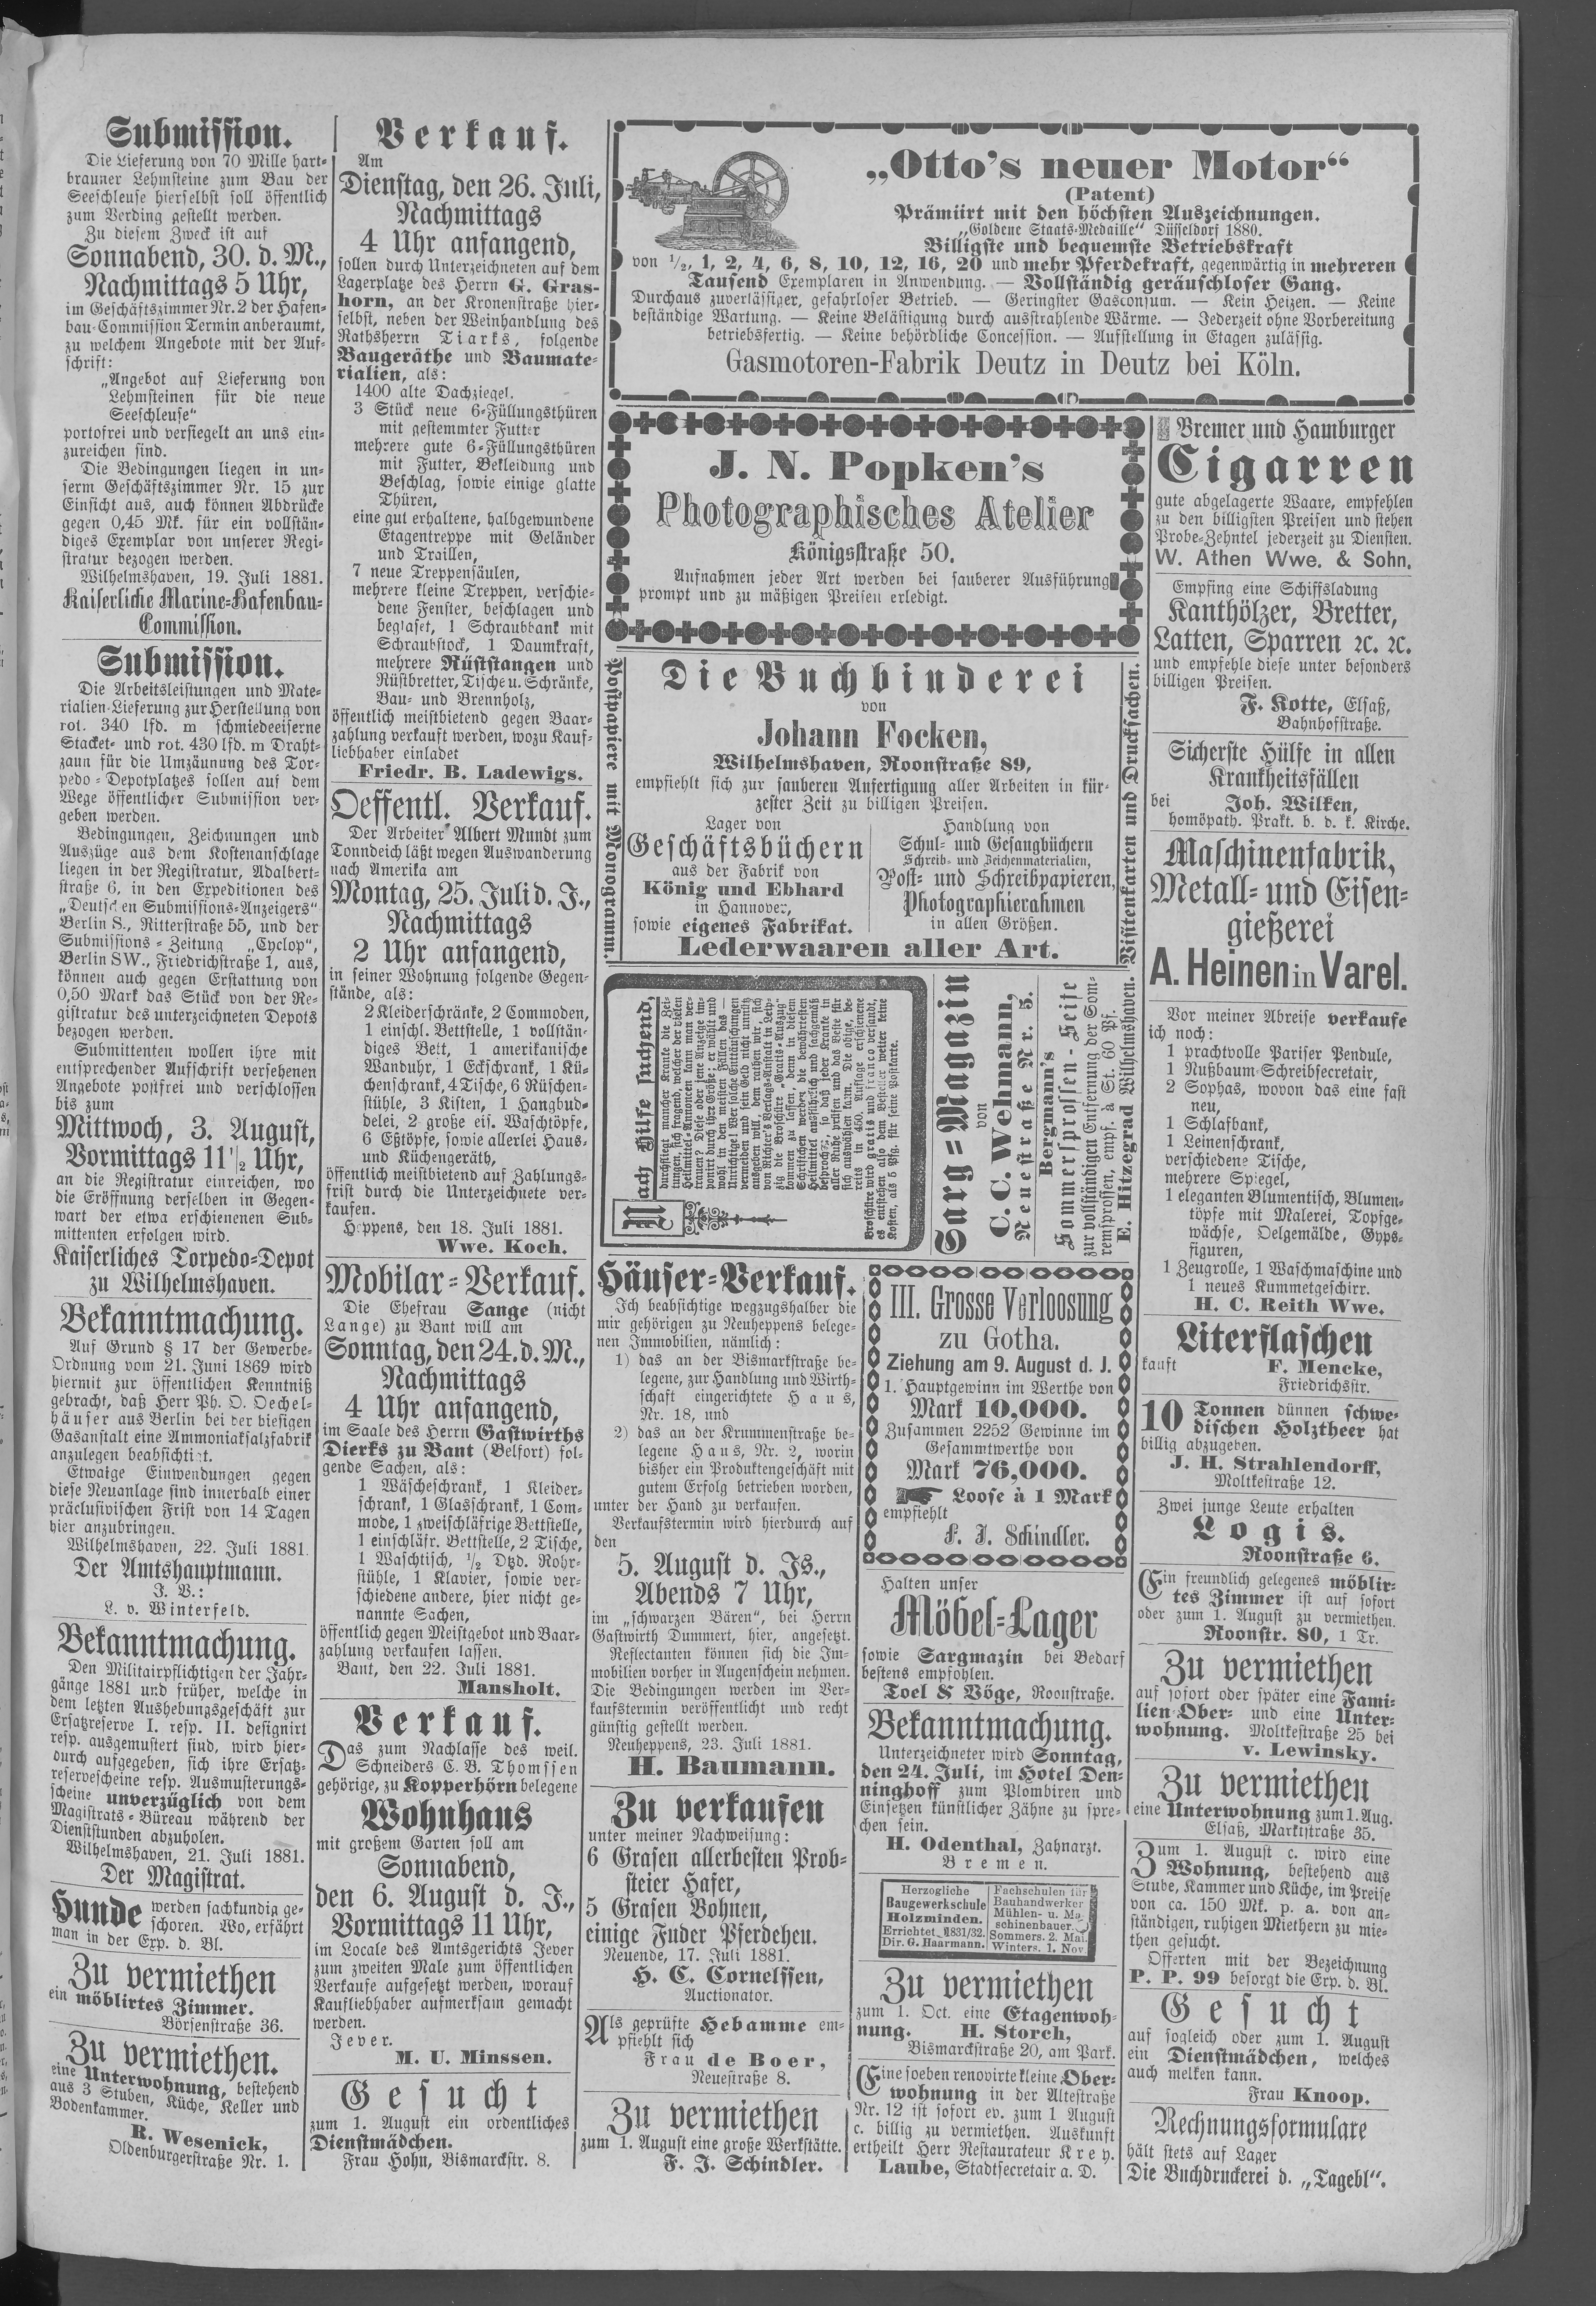 Submission.
Die Lieferung von 70 Mille hart-
brauner Lehmsteine zum Bau der
Seeschleuse hierselbst soll öffentlich
zum Verding gestellt werden.
Zu diesem Zweck ist auf
Sonnabend, 30. d. M.,
Nachmittags 5 Uhr,
im Geschäftszimmer Nr. 2 der Hafen-
bau-Commission Termin anberaumt,
zu welchem Angebote mit der Auf-
schrift:
„Angebot auf Lieferung von
Lehmsteinen für die neue
Seeschleuse“
portofrei und versiegelt an uns ein-
zureichen sind.
Die Bedingungen liegen in un-
serm Geschäftszimmer Nr. 15 zur
Einsicht aus, auch können Abdrücke
gegen 0,45 Mk. für ein vollstän-
diges Exemplar von unserer Regi-
stratur bezogen werden.
Wilhelmshaven, 19. Juli 1881.
Kaiserliche Marine-Hafenbau-
Commission.
Submission.
Die Arbeitsleistungen und Mate-
rialien-Lieferung zur Herstellung von
rot. 340 lfd. m schmiedeeiserne
Stacket- und rot. 430 lfd. m Draht-
zaun für die Umzäunung des Tor-
pedo-Depotplatzes sollen auf dem
Wege öffentlicher Submission ver-
geben werden.
Bedingungen, Zeichnungen und
Auszüge aus dem Kostenanschlage
liegen in der Registratur, Adalbert-
straße 6, in den Expeditionen des
„Deutschen Submissions-Anzeigers“
Berlin S., Ritterstraße 55, und der
Submissions-Zeitung „Cyclop“,
Berlin SW., Friedrichstraße 1, aus,
können auch gegen Erstattung von
0,50 Mark das Stück von der Re-
gistratur des unterzeichneten Depots
bezogen werden.
Submittenten wollen ihre mit
entsprechender Aufschrift versehenen
Angebote postfrei und verschlossen
bis zum
Mittwoch, 3. August,
Vormittags 11½ Uhr,
an die Registratur einreichen, wo
die Eröffnung derselben in Gegen-
wart der etwa erschienenen Sub-
mittenten erfolgen wird.
Kaiserliches Torpedo-Depot
zu Wilhelmshaven.
Bekanntmachung.
Auf Grund § 17 der Gewerbe-
Ordnung vom 21. Juni 1869 wird
hiermit zur öffentlichen Kenntniß
gebracht, daß Herr Ph. O. Oechel-
häuser aus Berlin bei der hiesigen
Gasanstalt eine Ammoniaksalzfabrik
anzulegen beabsichtigt.
Etwaige Einwendungen gegen
diese Neuanlage sind innerhalb einer
präclusivischen Frist von 14 Tagen
hier anzubringen.
Wilhelmshaven, 22. Juli 1881.
Der Amtshauptmann.
J. V.:
L. v. Winterfeld.
Bekanntmachung.
Den Militairpflichtigen der Jahr-
gänge 1881 und früher, welche in
dem letzten Aushebungsgeschäft zur
Ersatzreserve I. resp. II. designirt
resp. ausgemustert sind, wird hier-
durch aufgegeben, sich ihre Ersatz-
reservescheine resp. Ausmusterungs-
scheine unverzüglich von dem
Magistrats-Büreau während der
Dienststunden abzuholen.
Wilhelmshaven, 21. Juli 1881.
Der Magistrat.
Hunde werden sachkundig ge-
schoren. Wo, erfährt
man in der Exp. d. Bl.
Zu vermiethen
ein möblirtes Zimmer.
Börsenstraße 36.
Zu vermiethen.
eine Unterwohnung, bestehend
aus 3 Stuben, Küche, Keller und
Bodenkammer.
R. Wesenick,
Oldenburgerstraße Nr. 1.
Verkauf.
Am
Dienstag, den 26. Juli,
Nachmittags
4 Uhr anfangend,
sollen durch Unterzeichneten auf dem
Lagerplatze des Herrn G. Gras-
horn, an der Kronenstraße hier-
selbst, neben der Weinhandlung des
Rathsherrn Tiarks, folgende
Baugeräthe und Baumate-
rialien, als:
1400 alte Dachziegel,
3 Stück neue 6-Füllungsthüren
mit gestemmter Futter
mehrere gute 6-Füllungsthüren
mit Futter, Bekleidung und
Beschlag, sowie einige glatte
Thüren,
eine gut erhaltene, halbgewundene
Etagentreppe mit Geländer
und Traillen,
7 neue Treppensäulen,
mehrere kleine Treppen, verschie-
dene Fenster, beschlagen und
beglaset, 1 Schraubbank mit
Schraubstock, 1 Daumkraft,
mehrere Rüststangen und
Rüstbretter, Tische u. Schränke,
Bau- und Brennholz,
öffentlich meistbietend gegen Baar-
zahlung verkauft werden, wozu Kauf-
liebhaber einladet
Friedr. B. Ladewigs.
Oeffentl. Verkauf.
Der Arbeiter Albert Mundt zum
Tonndeich läßt wegen Auswanderung
nach Amerika am
Montag, 25. Juli d. J.,
Nachmittags
2 Uhr anfangend,
in seiner Wohnung folgende Gegen-
stände, als:
2 Kleiderschränke, 2 Commoden,
1 einschl. Bettstelle, 1 vollstän-
diges Bett, 1 amerikanische
Wanduhr, 1 Eckschrank, 1 Kü-
chenschrank, 4 Tische, 6 Rüschen-
stühle, 3 Kisten, 1 Hangbud-
delei, 2 große eis. Waschtöpfe,
6 Eßtöpfe, sowie allerlei Haus-
und Küchengeräth,
öffentlich meistbietend auf Zahlungs-
frist durch die Unterzeichnete ver-
kaufen.
Heppens, den 18. Juli 1881.
Wwe. Koch.
Mobilar-Verkauf.
Die Ehefrau Sange (nicht
Lange) zu Bant will am
Sonntag, den 24. d. M.,
Nachmittags
4 Uhr anfangend,
im Saale des Herrn Gastwirths
Dierks zu Bant (Belfort) fol-
gende Sachen, als:
1 Wäscheschrank, 1 Kleider-
schrank, 1 Glasschrank, 1 Com-
mode, 1 zweischläfrige Bettstelle,
1 einschläfr. Bettstelle, 2 Tische,
1 Waschtisch, ½ Dtzd. Rohr-
stühle, 1 Klavier, sowie ver-
schiedene andere, hier nicht ge-
nannte Sachen,
öffentlich gegen Meistgebot und Baar-
zahlung verkaufen lassen.
Bant, den 22. Juli 1881.
Mansholt.
Verkauf.
Das zum Nachlasse des weil.
Schneiders C. B. Thomssen
gehörige, zu Kopperhörn belegene
Wohnhaus
mit großem Garten soll am
Sonnabend,
den 6. August d. J.,
Vormittags 11 Uhr,
im Locale des Amtsgerichts Jever
zum zweiten Male zum öffentlichen
Verkaufe aufgesetzt werden, worauf
Kaufliebhaber aufmerksam gemacht
werden.
Jever.
M. U. Minssen.
Gesucht
zum 1. August ein ordentliches
Dienstmädchen.
Frau Hohn, Bismarckstr. 8.
„Otto's neuer Motor“
(Patent)
Prämiirt mit den höchsten Auszeichnungen.
„Goldene Staats-Medaille“ Düsseldorf 1880.
Billigste und bequemste Betriebskraft
von ½, 1, 2, 4, 6, 8, 10, 12, 16, 20 und mehr Pferdekraft, gegenwärtig in mehreren
Tausend Exemplaren in Anwendung. — Vollständig geräuschloser Gang.
Durchaus zuverlässiger, gefahrloser Betrieb. — Geringster Gasconsum. — Kein Heizen. — Keine
beständige Wartung. — Keine Belästigung durch ausstrahlende Wärme. — Jederzeit ohne Vorbereitung
betriebsfertig. — Keine behördliche Concession. — Aufstellung in Etagen zulässig.
Gasmotoren-Fabrik Deutz in Deutz bei Köln.
J. N. Popken's
Photographisches Atelier
Königsstraße 50.
Aufnahmen jeder Art werden bei sauberer Ausführung
prompt und zu mäßigen Preisen erledigt.
Postpapiere mit Monogramm.
Die Buchbinderei
von
Johann Focken,
Wilhelmshaven, Roonstraße 89,
empfiehlt sich zur sauberen Anfertigung aller Arbeiten in kür-
zester Zeit zu billigen Preisen.
Lager von
Geschäftsbüchern
aus der Fabrik von
König und Ebhard
in Hannover,
sowie eigenes Fabrikat.
Handlung von
Schul- und Gesangbüchern
Schreib- und Zeichenmaterialien,
Post- und Schreibpapieren,
Photographierahmen
in allen Größen.
Lederwaaren aller Art.
Visitenkarten und Drucksachen.
Nach Hilfe suchend,
durchfliegt mancher Kranke die Zei-
tungen, sich fragend, welcher der vielen
Heilmittel-Annoncen kann man ver-
trauen? Diese oder jene Anzeige im-
ponirt durch ihre Größe; er wählt und
wohl in den meisten Fällen das —
Unrichtige! Wer solche Enttäuschungen
vermeiden und sein Geld nicht unnütz
ausgeben will, dem rathen wir, sich
von Richter's Verlags-Anstalt in Leip-
zig die Broschüre „Gratis-Auszug“
kommen zu lassen, denn in diesem
Schriftchen werden die bewährtesten
Heilmittel ausführlich und sachgemäß
besprochen, so daß jeder Kranke in
aller Ruhe prüfen und das Beste für
sich auswählen kann. Die obige, be-
reits in 450. Auflage erschienene
Broschüre wird gratis und franco versandt,
es entstehen also dem Besteller weiter keine
Kosten, als 5 Pfg. für seine Postkarte.
Sarg-Magazin
von
C. C. Wehmann,
Neuestraße Nr. 5.
Bergmann's
Sommersprossen-Seife
zur vollständigen Entfernung der Som-
mersprossen, empf. à St. 60 Pf.
E. Hitzegrad Wilhelmshaven.
Häuser-Verkauf.
Ich beabsichtige wegzugshalber die
mir gehörigen zu Neuheppens belege-
nen Immobilien, nämlich:
1) das an der Bismarkstraße be-
legene, zur Handlung und Wirth-
schaft eingerichtete Haus,
Nr. 18, und
2) das an der Krummenstraße be-
legene Haus, Nr. 2, worin
bisher ein Produktengeschäft mit
gutem Erfolg betrieben worden,
unter der Hand zu verkaufen.
Verkaufstermin wird hierdurch auf
den
5. August d. Js.,
Abends 7 Uhr,
im „schwarzen Bären“, bei Herrn
Gastwirth Dummert, hier, angesetzt.
Reflectanten können sich die Im-
mobilien vorher in Augenschein nehmen.
Die Bedingungen werden im Ver-
kaufstermin veröffentlicht und recht
günstig gestellt werden.
Neuheppens, 23. Juli 1881.
H. Baumann.
Zu verkaufen
unter meiner Nachweisung:
6 Grasen allerbesten Prob-
steier Hafer,
5 Grasen Bohnen,
einige Fuder Pferdeheu.
Neuende, 17. Juli 1881.
H. C. Cornelssen,
Auctionator.
Als geprüfte Hebamme em-
pfiehlt sich
Frau de Boer,
Neuestraße 8.
Zu vermiethen
zum 1. August eine große Werkstätte.
F. J. Schindler.
III. Grosse Verloosung
zu Gotha.
Ziehung am 9. August d. J.
1. Hauptgewinn im Werthe von
Mark 10,000.
Zusammen 2252 Gewinne im
Gesammtwerthe von
Mark 76,000.
Loose à 1 Mark
empfiehlt
F. J. Schindler.
Halten unser
Möbel-Lager
sowie Sargmazin bei Bedarf
bestens empfohlen.
Toel & Vöge, Roonstraße.
Bekanntmachung.
Unterzeichneter wird Sonntag,
den 24. Juli, im Hotel Den-
ninghoff zum Plombiren und
Einsetzen künstlicher Zähne zu spre-
chen sein.
H. Odenthal, Zahnarzt.
Bremen.
Herzogliche
Baugewerkschule
Holzminden.
Errichtet 1831/32.
Dir. G. Haarmann.
Fachschulen für
Bauhandwerker
Mühlen- u. Ma-
schinenbauer.
Sommers. 2. Mai.
Winters. 1. Nov.
Zu vermiethen
zum 1. Oct. eine Etagenwoh-
nung. H. Storch,
Bismarckstraße 20, am Park.
Eine soeben renovirte kleine Ober-
wohnung in der Altestraße
Nr. 12 ist sofort ev. zum 1 August
c. billig zu vermiethen. Auskunft
ertheilt Herr Restaurateur Krey.
Laube, Stadtsecretair a. D.
Bremer und Hamburger
Cigarren
gute abgelagerte Waare, empfehlen
zu den billigsten Preisen und stehen
Probe-Zehntel jederzeit zu Diensten.
W. Athen Wwe. & Sohn.
Empfing eine Schiffsladung
Kanthölzer, Bretter,
Latten, Sparren ꝛc. ꝛc.
und empfehle diese unter besonders
billigen Preisen.
F. Kotte, Elsaß,
Bahnhofstraße.
Sicherste Hülfe in allen
Krankheitsfällen
bei Joh. Wilken,
homöpath. Prakt. b. d. k. Kirche.
Maschinenfabrik,
Metall- und Eisen-
gießerei
A. Heinen in Varel.
Vor meiner Abreise verkaufe
ich noch:
1 prachtvolle Pariser Pendule,
1 Nußbaum-Schreibsecretair,
2 Sophas, wovon das eine fast
neu,
1 Schlafbank,
1 Leinenschrank,
verschiedene Tische,
mehrere Spiegel,
1 eleganten Blumentisch, Blumen-
töpfe mit Malerei, Topfge-
wächse, Oelgemälde, Gyps-
figuren,
1 Zeugrolle, 1 Waschmaschine und
1 neues Kummetgeschirr.
H. C. Reith Wwe.
Literflaschen
kauft F. Mencke,
Friedrichsstr.
10 Tonnen dünnen schwe-
dischen Holztheer hat
billig abzugeben.
J. H. Strahlendorff,
Moltkestraße 12.
Zwei junge Leute erhalten
Logis.
Roonstraße 6.
Ein freundlich gelegenes möblir-
tes Zimmer ist auf sofort
oder zum 1. August zu vermiethen.
Roonstr. 80, 1 Tr.
Zu vermiethen
auf sofort oder später eine Fami-
lien-Ober- und eine Unter-
wohnung. Moltkestraße 25 bei
v. Lewinsky.
Zu vermiethen
eine Unterwohnung zum 1. Aug.
Elsaß, Marktstraße 35.
Zum 1. August c. wird eine
Wohnung, bestehend aus
Stube, Kammer und Küche, im Preise
von ca. 150 Mk. p. a. von an-
ständigen, ruhigen Miethern zu mie-
then gesucht.
Offerten mit der Bezeichnung
P. P. 99 besorgt die Exp. d. Bl.
Gesucht
auf sogleich oder zum 1. August
ein Dienstmädchen, welches
auch melken kann.
Frau Knoop.
Rechnungsformulare
hält stets auf Lager
Die Buchdruckerei d. „Tagebl“.